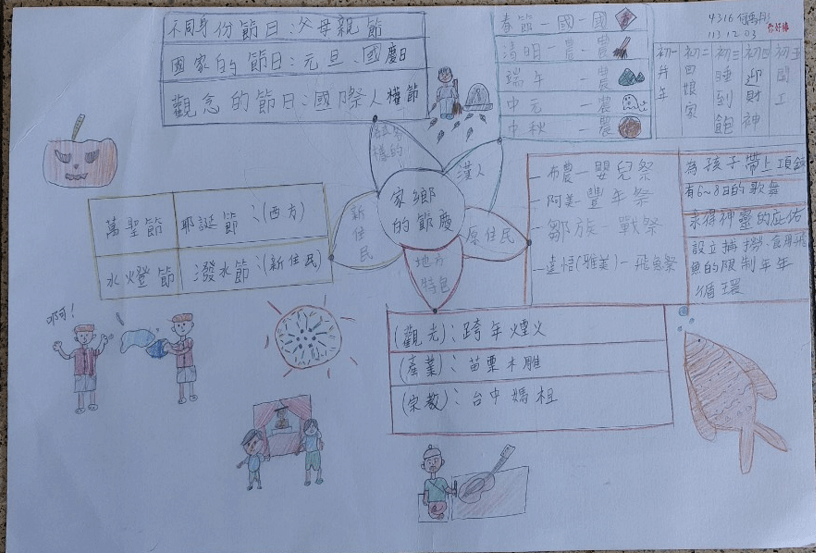 不同身份節日:父母親節
國家的節日:元旦、國慶日
觀念的節日:國際人權節
春節一國一國
清明一農、農
端午 一農
中元 一農
中秋一農
113 12 03
初一
拜年
初二
回娘家
初三
睡到飽
初四
迎財神
初五
開工
樣的
漢人
家鄉
的節慶
新住民
原住民
地方
特色
萬聖節
耶誕節:(西方)
水燈節
潑水節:(新住民)
一布農一嬰兒祭
一阿美一豐年祭
一鄒族一戰祭
一達悟(雅美)一飛魚祭
為孩子帶上項鍊
有6~8日的歌舞
求得神靈的庇佑
設立捕撈、食用飛
魚的限制年年
循環
啊!
(觀光):跨年煙火
(產業):苗栗木雕
(宗教):台中媽祖